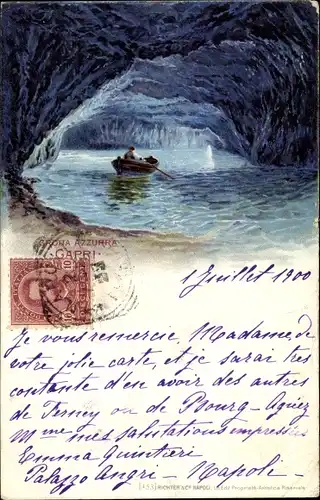 GROTTA AZZURRA
CAPRI
1 Juillet 1900
Je vous remercie, Madame, de
votre jolie carte, et je sarai très
contante d'en avoir des autres
de Ferney ou de Bourg - Agréez
Mme mes salutations empressées
Emma Quintieri
Palazzo Angri - Napoli -
RICHTER & Co NAPOLI